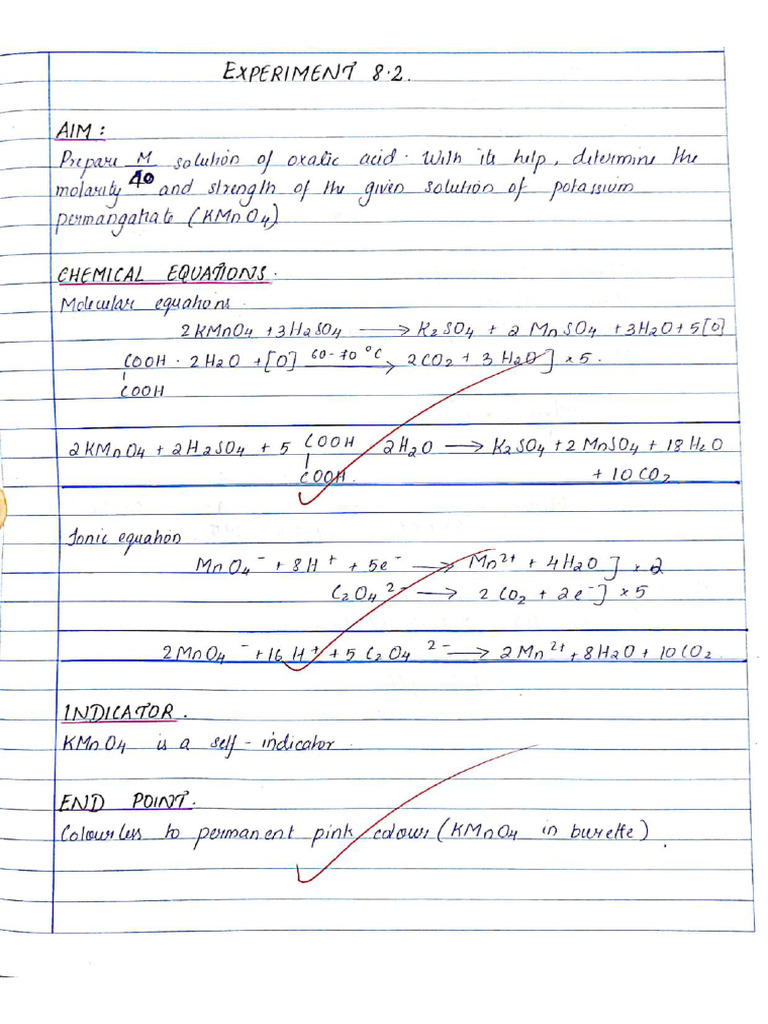 EXPERIMENT 8.2.
AIM:
Prepare M/40 solution of oxalic acid. With its help, determine the
molarity and strength of the given solution of potassium
permanganate (KMnO4)
CHEMICAL EQUATIONS.
Molecular equations.
2KMnO4 + 3H2SO4 ⟶ K2SO4 + 2MnSO4 + 3H2O + 5[O]
COOH · 2H2O + [O] 60-70°C ⟶ 2CO2 + 3H2O] × 5.
COOH
2KMnO4 + 2H2SO4 + 5 COOH 2H2O ⟶ K2SO4 + 2MnSO4 + 18H2O
COOH. + 10CO2
Ionic equation
MnO4⁻ + 8H⁺ + 5e⁻ ⟶ Mn²⁺ + 4H2O] × 2
C2O4²⁻ ⟶ 2CO2 + 2e⁻] × 5
2MnO4⁻ + 16H⁺ + 5C2O4²⁻ ⟶ 2Mn²⁺ + 8H2O + 10CO2
INDICATOR.
KMnO4 is a self-indicator
END POINT.
Colourless to permanent pink colour (KMnO4 in burette).